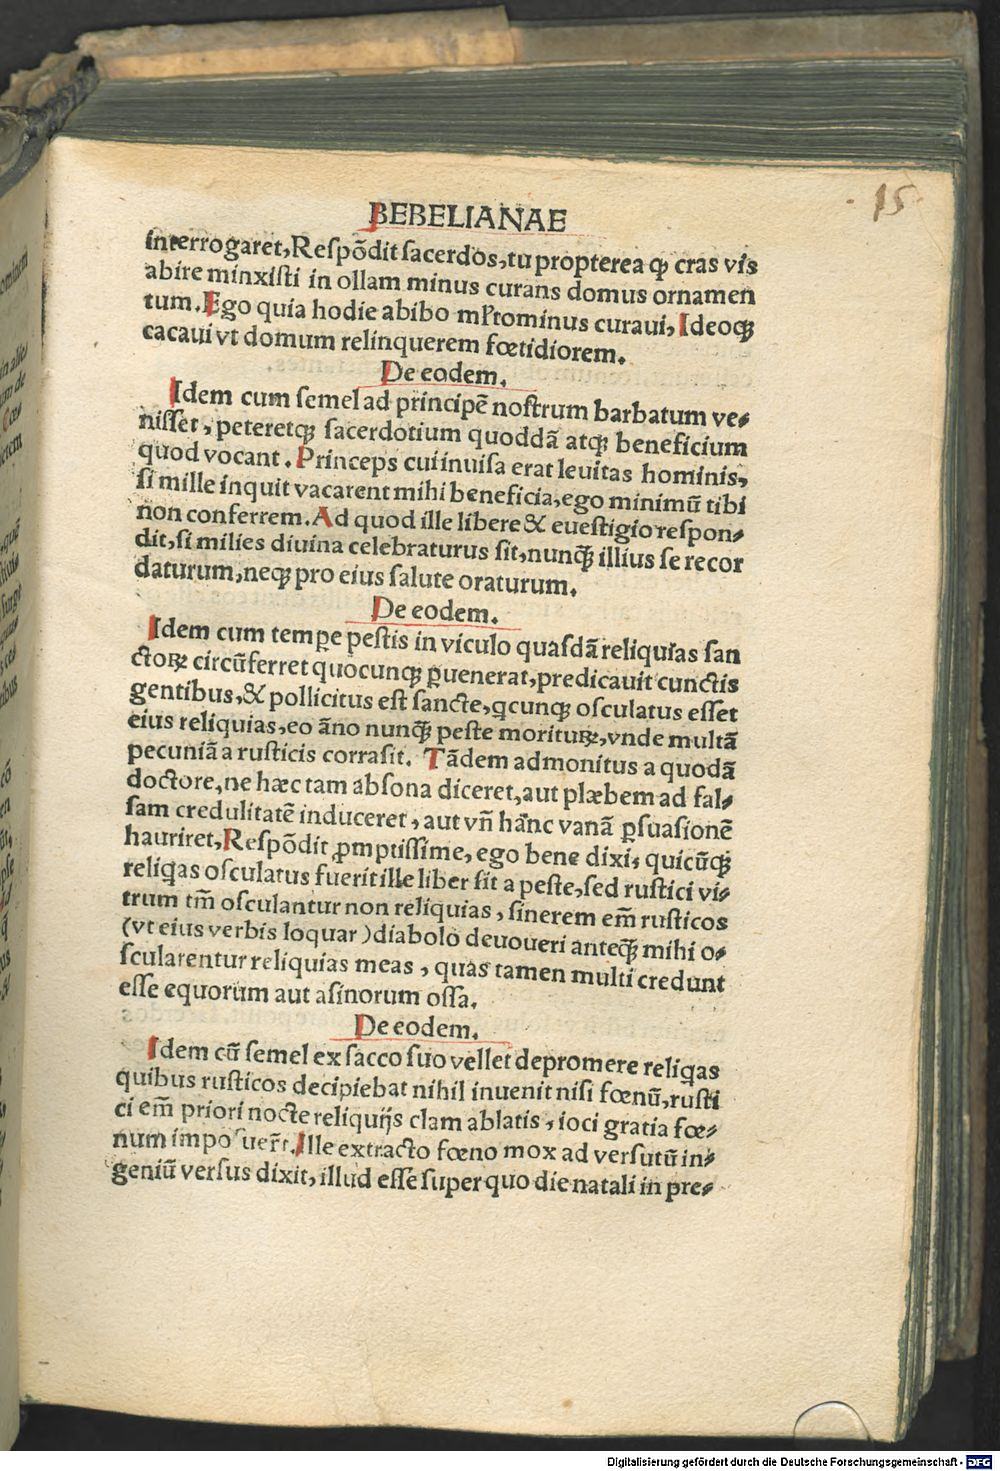 15
BEBELIANAE
interrogaret, Respõdit sacerdos, tu propterea ꝙ cras vis
abire minxisti in ollam minus curans domus ornamen
tum. Ego quia hodie abibo ml̃tominus curaui, Ideoqꝫ
cacaui vt domum relinquerem fœtidiorem.
De eodem.
Idem cum semel ad principẽ nostrum barbatum ve-
nisset, peteretqꝫ sacerdotium quoddã atqꝫ beneficium
quod vocant. Princeps cui inuisa erat leuitas hominis,
si mille inquit vacarent mihi beneficia, ego minimũ tibi
non conferrem. Ad quod ille libere & euestigio respon-
dit, si milies diuina celebraturus sit, nunꝙ̃ illius se recor
daturum, neqꝫ pro eius salute oraturum.
De eodem.
Idem cum tempe pestis in viculo quasdã reliquias san
ctoꝝ circũferret quocunqꝫ ꝑuenerat, predicauit cunctis
gentibus, & pollicitus est sancte, qcunqꝫ osculatus esset
eius reliquias, eo ãno nunꝙ̃ peste morituꝝ, vnde multã
pecuniã a rusticis corrasit. Tãdem admonitus a quodã
doctore, ne hæc tam absona diceret, aut plæbem ad fal-
sam credulitatẽ induceret, aut vñ hãnc vanã ꝑsuasionẽ
hauriret, Respõdit ꝓmptissime, ego bene dixi, quicũqꝫ
reliqas osculatus fuerit ille liber sit a peste, sed rustici vi-
trum tm̃ osculantur non reliquias, sinerem em̃ rusticos
(vt eius verbis loquar) diabolo deuoueri anteꝙ̃ mihi o-
scularentur reliquias meas, quas tamen multi credunt
esse equorum aut asinorum ossa.
De eodem.
Idem cũ semel ex sacco suo vellet depromere reliqas
quibus rusticos decipiebat nihil inuenit nisi fœnũ, rusti
ci em̃ priori nocte reliquijs clam ablatis, ioci gratia fœ-
num imposuer̃t. Ille extracto fœno mox ad versutũ in-
geniũ versus dixit, illud esse super quo die natali in pre-
Digitalisierung gefördert durch die Deutsche Forschungsgemeinschaft - DFG